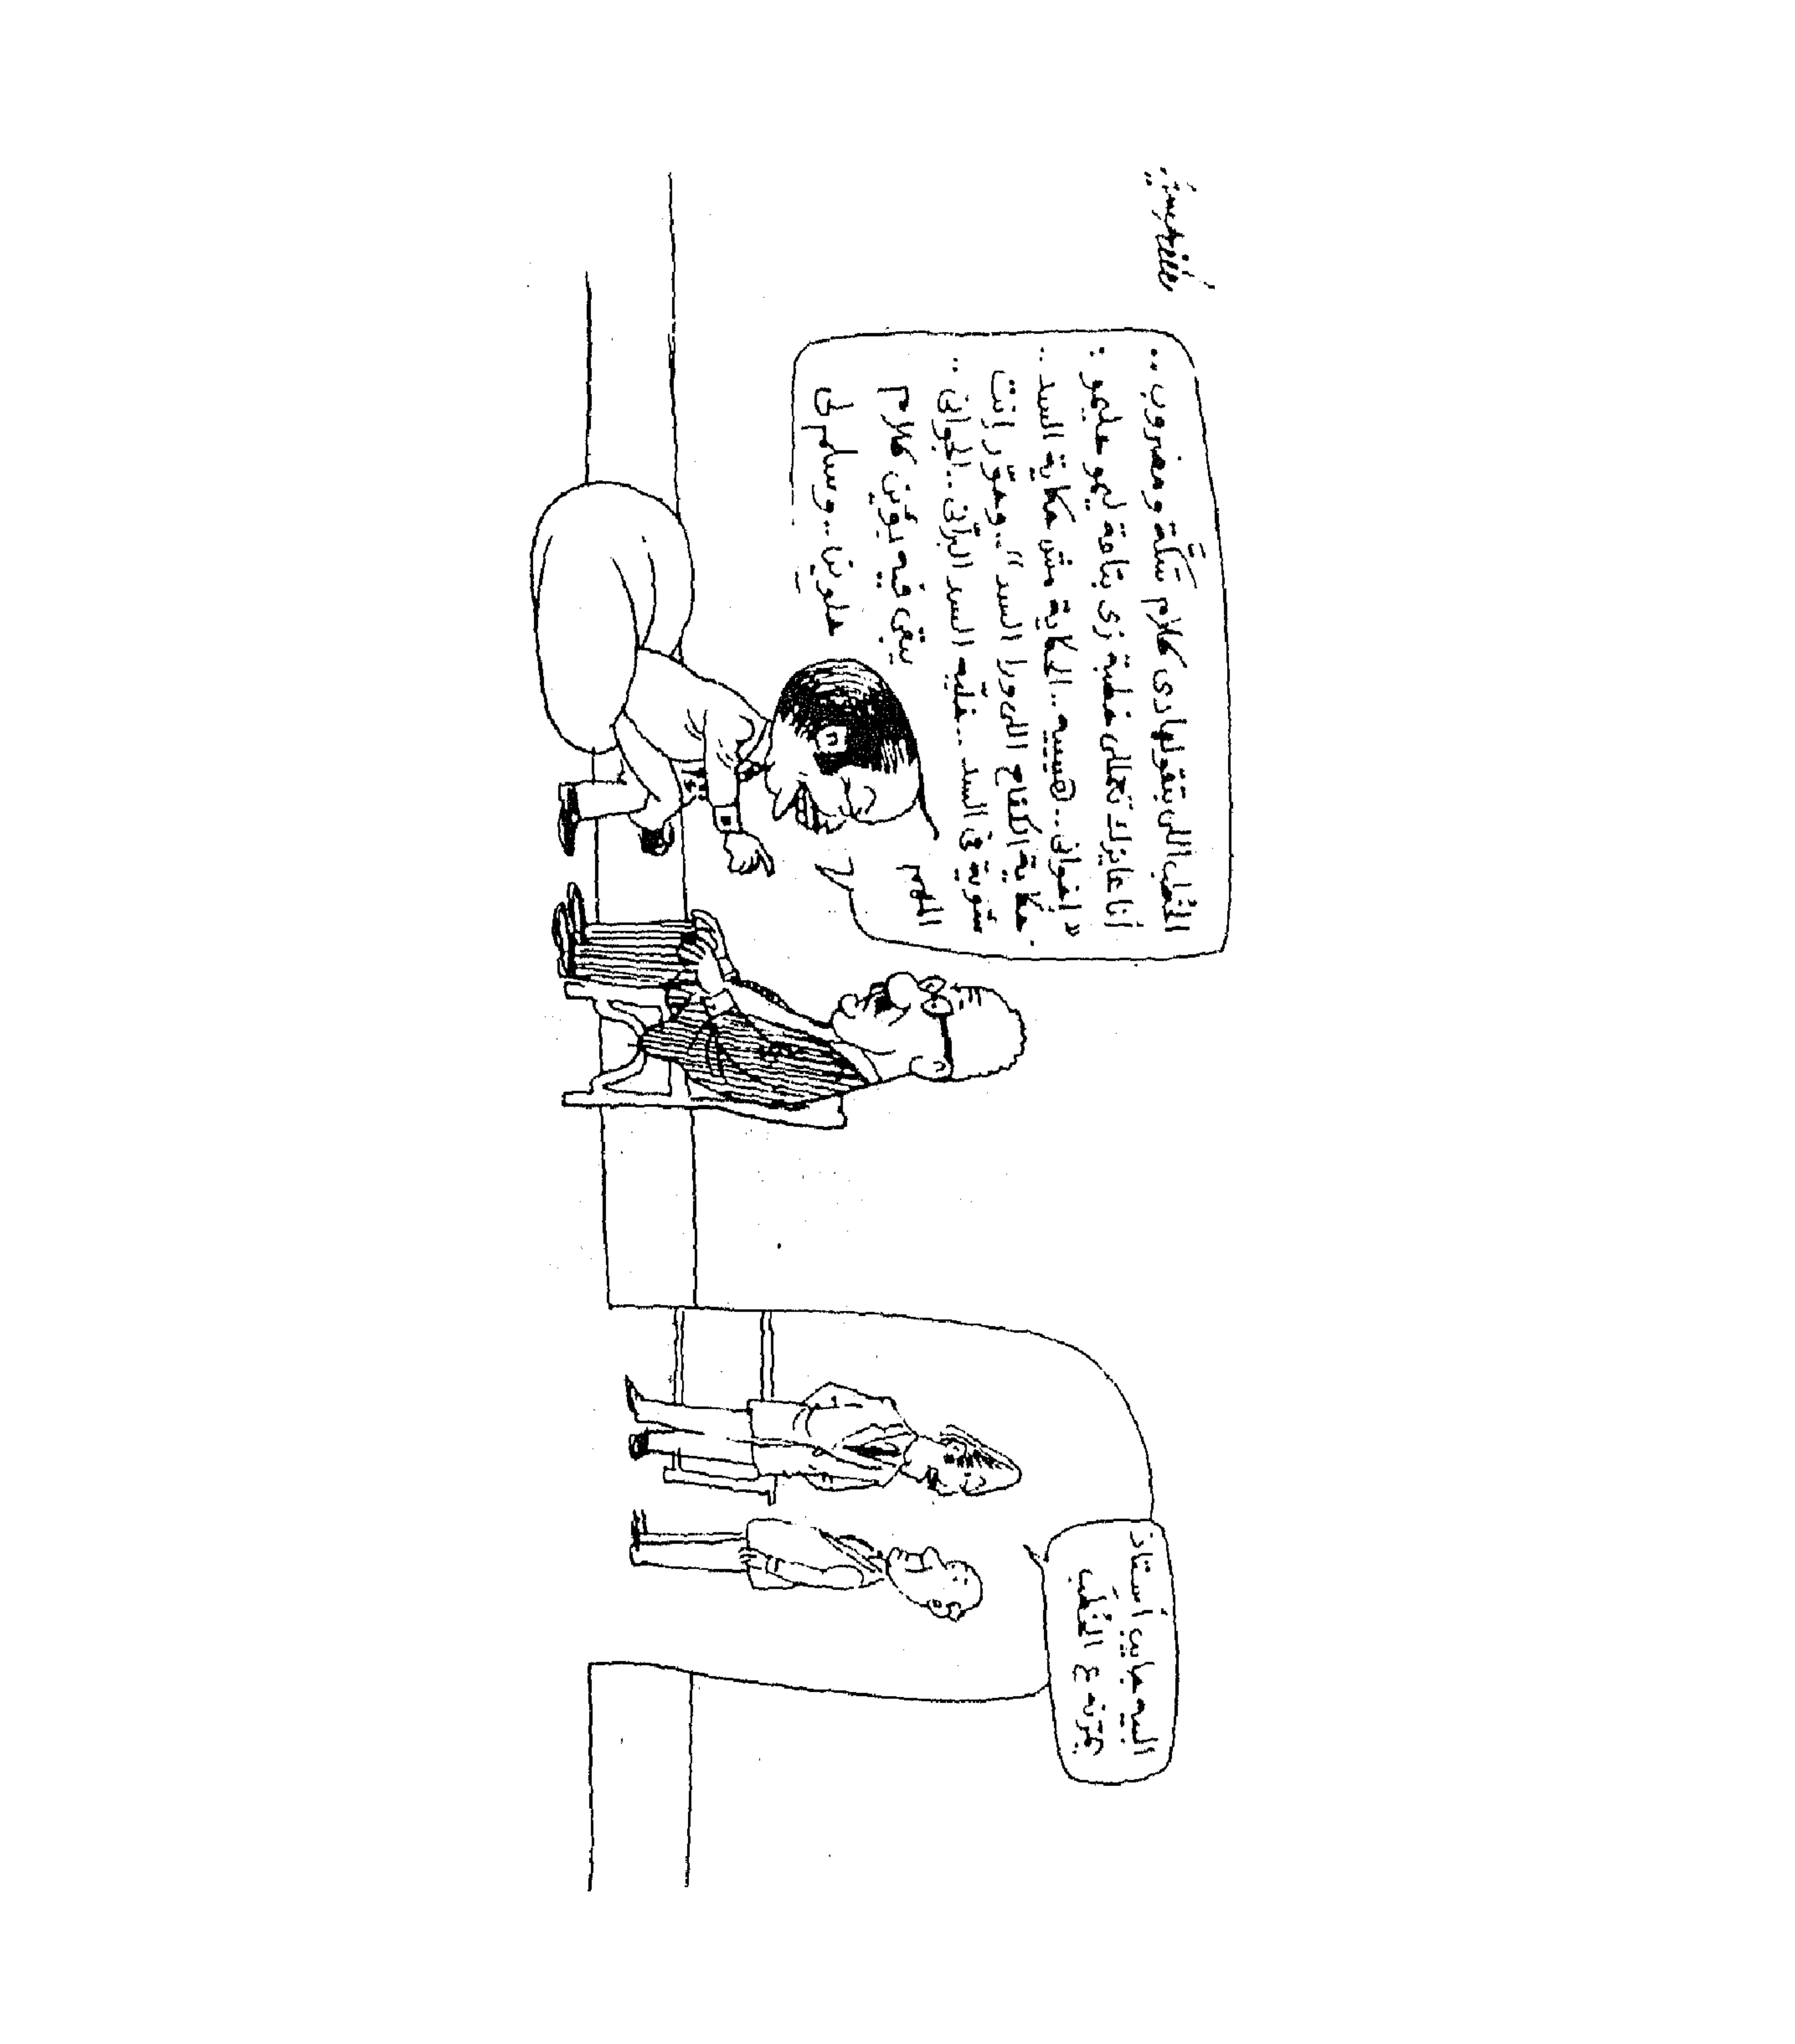 البيه جايب أستاذ
يمرّنه ع الخُطَب
الخُطَب اللى بتقولها دى كلام سَكَّة ومضروب ..
أنا عايزك تعمللى خطبة زى بتاعة ليمو حليمو :
« إخوانى .. هييييه .. الحكاية مش حكاية السد ..
حكاية الكفاح اللى ورا السد » .. وحوّر إنت
شوية فى السد .. خليه السد البرّانى .. الجوانى ..
المهم يبقى فيه بوقين كلام
حلوين .. وسلم لى